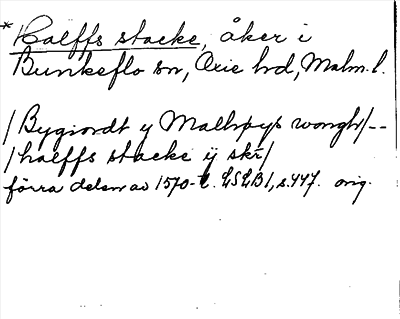 *Halffs stacke, åker i
Bunkeflo sn, Oxie hd, Malm. l.
/Bygiordt y Mallrpys wongh/--
/halffs stacke ij skr/
förra delen av 1570-t. LSLB1, s.447. orig.